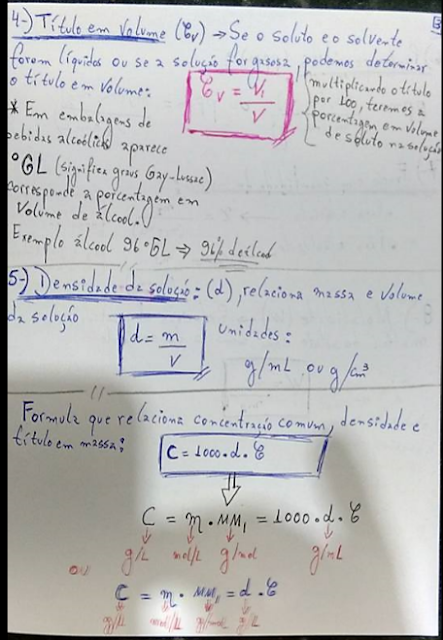 4-) Título em volume (τv) → Se o soluto e o solvente
forem líquidos ou se a solução for gasosa, podemos determinar
o título em volume:
τv = V₁/V
multiplicando o título
por 100, teremos a
porcentagem em volume
de soluto na solução
* Em embalagens de
bebidas alcoólicas aparece
°GL (significa graus Gay-Lussac)
corresponde a porcentagem em
volume de álcool.
Exemplo álcool 96°GL ⇒ 96% de álcool
5-) Densidade da solução: (d), relaciona massa e volume
da solução
d = m/V
Unidades:
g/mL ou g/cm³
Formula que relaciona concentração comum, densidade e
título em massa:
C = 1000 • d • τ
C = m • MM₁ = 1000 • d • τ
g/L mol/L g/mol g/mL
ou
C = m • MM₁ = d • τ
g/L mol/L g/mol g/L